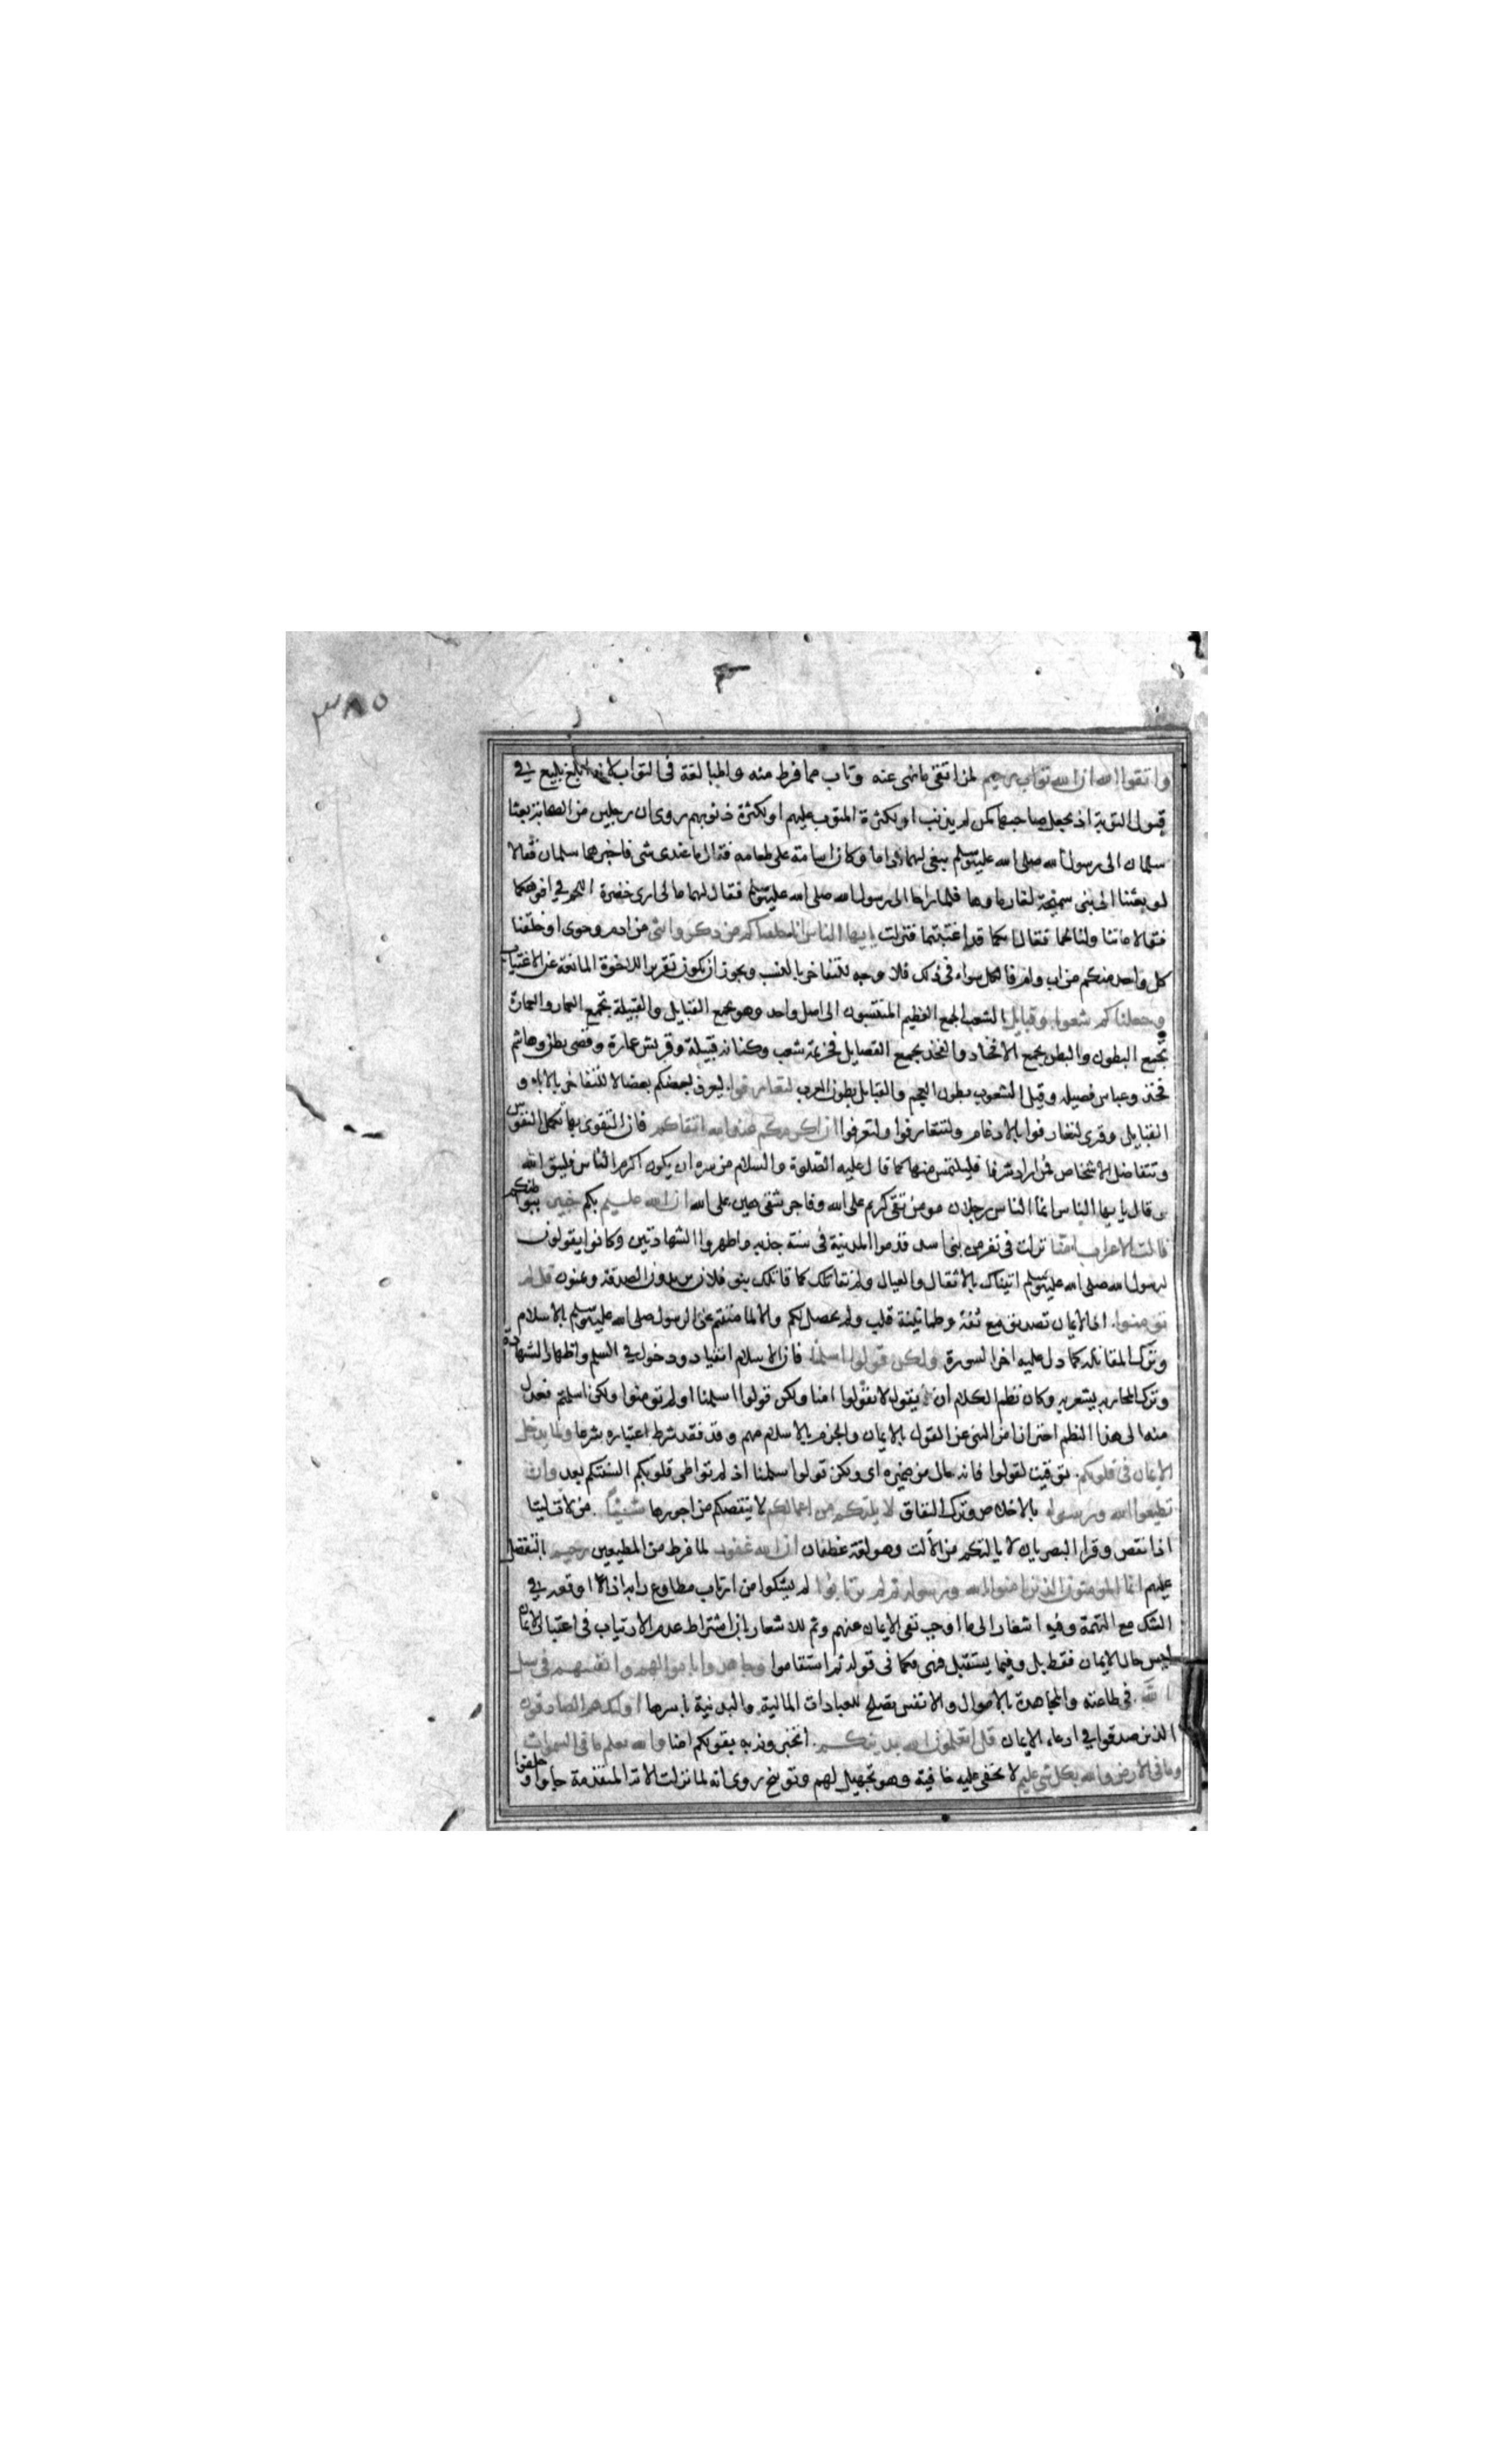 ٣٨٥
واتقوا الله ان الله تواب رحيم لمن اتقى ما نهى عنه وتاب مما فرط منه والمبالغة في التواب لانه بليغ في
قبول التوبة اذ يجعل صاحبها كمن لم يذنب او لكثرة المتوب عليهم او لكثرة ذنوبهم روى ان رجلين من الصحابة بعثا
سلمان الى رسول الله صلى الله عليه وسلم يبغى لهما اداما وكان اسامة على طعامه فقال ما عندى شى فاخبرهما سلمان فقالا
لو بعثنا الى بئر سميحة لغار ماوها فلما راحا الى رسول الله صلى الله عليه وسلم فقال لهما مالى ارى خضرة اللحم في افواهكما
فقالا ما تناولنا لحما فقال انكما قد اغتبتما فنزلت يايها الناس انا خلقناكم من ذكر وانثى من ادم وحوى او خلقنا
كل واحد منكم من اب وام فالكل سواء فى ذلك فلا وجه للتفاخر بالنسب ويجوز ان يكون تقريرا للاخوة المانعة عن الاغتياب
وجعلناكم شعوبا وقبايل الشعب الجمع العظيم المنتسبون الى اصل واحد وهو يجمع القبايل والقبيلة تجمع العماير والعمارة
تجمع البطون والبطن يجمع الافخاذ والفخذ يجمع الفصايل فخزيمة شعب وكنانة قبيلة وقريش عمارة وقصى بطن وهاشم
فخذ وعباس فصيلة وقيل الشعوب بطون العجم والقبايل بطون العرب لتعارفوا ليعرف بعضكم بعضا لا للتفاخر بالاباء و
القبايل وقرى لتعارفوا بالادغام ولتتعارفوا ولتعرفوا ان اكرمكم عند الله اتقاكم فان التقوى بها تكمل النفوس
وتتفاضل الاشخاص فمن اراد شرفا فليلتمس منها كما قال عليه الصلوة والسلام من سره ان يكون اكرم الناس فليتق الله
وقال يايها الناس انما الناس رجلان مومن تقى كريم على الله وفاجر شقى هين على الله ان الله عليم بكم خبير ببواطنكم
قالت الاعراب امنا نزلت في نفر من بنى اسد قدموا المدينة فى سنة جدبه واظهروا الشهادتين وكانوا يقولون
لرسول الله صلى الله عليه وسلم اتيناك بالاثقال والعيال ولم نقاتلك كما قاتلك بنو فلان يريدون الصدقة ويمنون قل لم
تؤمنوا اذ الايمان تصديق مع ثقة وطمانينة قلب ولم يحصل لكم والا لما مننتم على الرسول صلى الله عليه وسلم بالاسلام
وترك المقاتلة كما دل عليه اخر السورة ولكن قولوا اسلمنا فان الاسلام انقياد ودخول في السلم واظهار الشهادة
وترك المحاربة يشعر به وكان نظم الكلام ان يقول لا تقولوا امنا ولكن قولوا اسلمنا او لم تومنوا ولكن اسلمتم فعدل
منه الى هذا النظم احترازا من النهى عن القول بالايمان والجزم بالاسلام منهم وقد فقد شرط اعتباره شرعا ولما يدخل
الايمان فى قلوبكم توقيت لقولوا فانه حال من ضميره اى ولكن قولوا اسلمنا اذ لم تواطى قلوبكم السنتكم بعد وان
تطيعوا الله ورسوله بالاخلاص وترك النفاق لا يلتكم من اعمالكم لا ينقصكم من اجورها شيئا من لات ليتا
اذا نقص وقرا البصريان لا يالتكم من الالت وهو لغة غطفان ان الله غفور لما فرط من المطيعين رحيم بالتفضل
عليهم انما المومنون الذين امنوا بالله ورسوله ثم لم يرتابوا لم يشكوا من ارتاب مطاوع رابه اذا اوقعه في
الشك مع التهمة وفيه اشعار الى ما اوجب نفى الايمان عنهم وثم للاشعار بان اشتراط عدم الارتياب فى اعتبار الايمان
ليس حال الايمان فقط بل وفيما يستقبل فهى كما فى قوله ثم استقاموا وجاهدوا باموالهم وانفسهم فى سبيل
الله فى طاعته والمجاهدة بالاموال والانفس تصلح للعبادات المالية والبدنية باسرها اولئك هم الصادقون
الذين صدقوا في ادعاء الايمان قل اتعلمون الله بدينكم اتخبرونه به بقولكم امنا والله يعلم ما فى السموات
وما فى الارض والله بكل شى عليم لا يخفى عليه خافية وهو تجهيل لهم وتوبيخ روى انه لما نزلت الاية المتقدمة جاوا وحلفوا